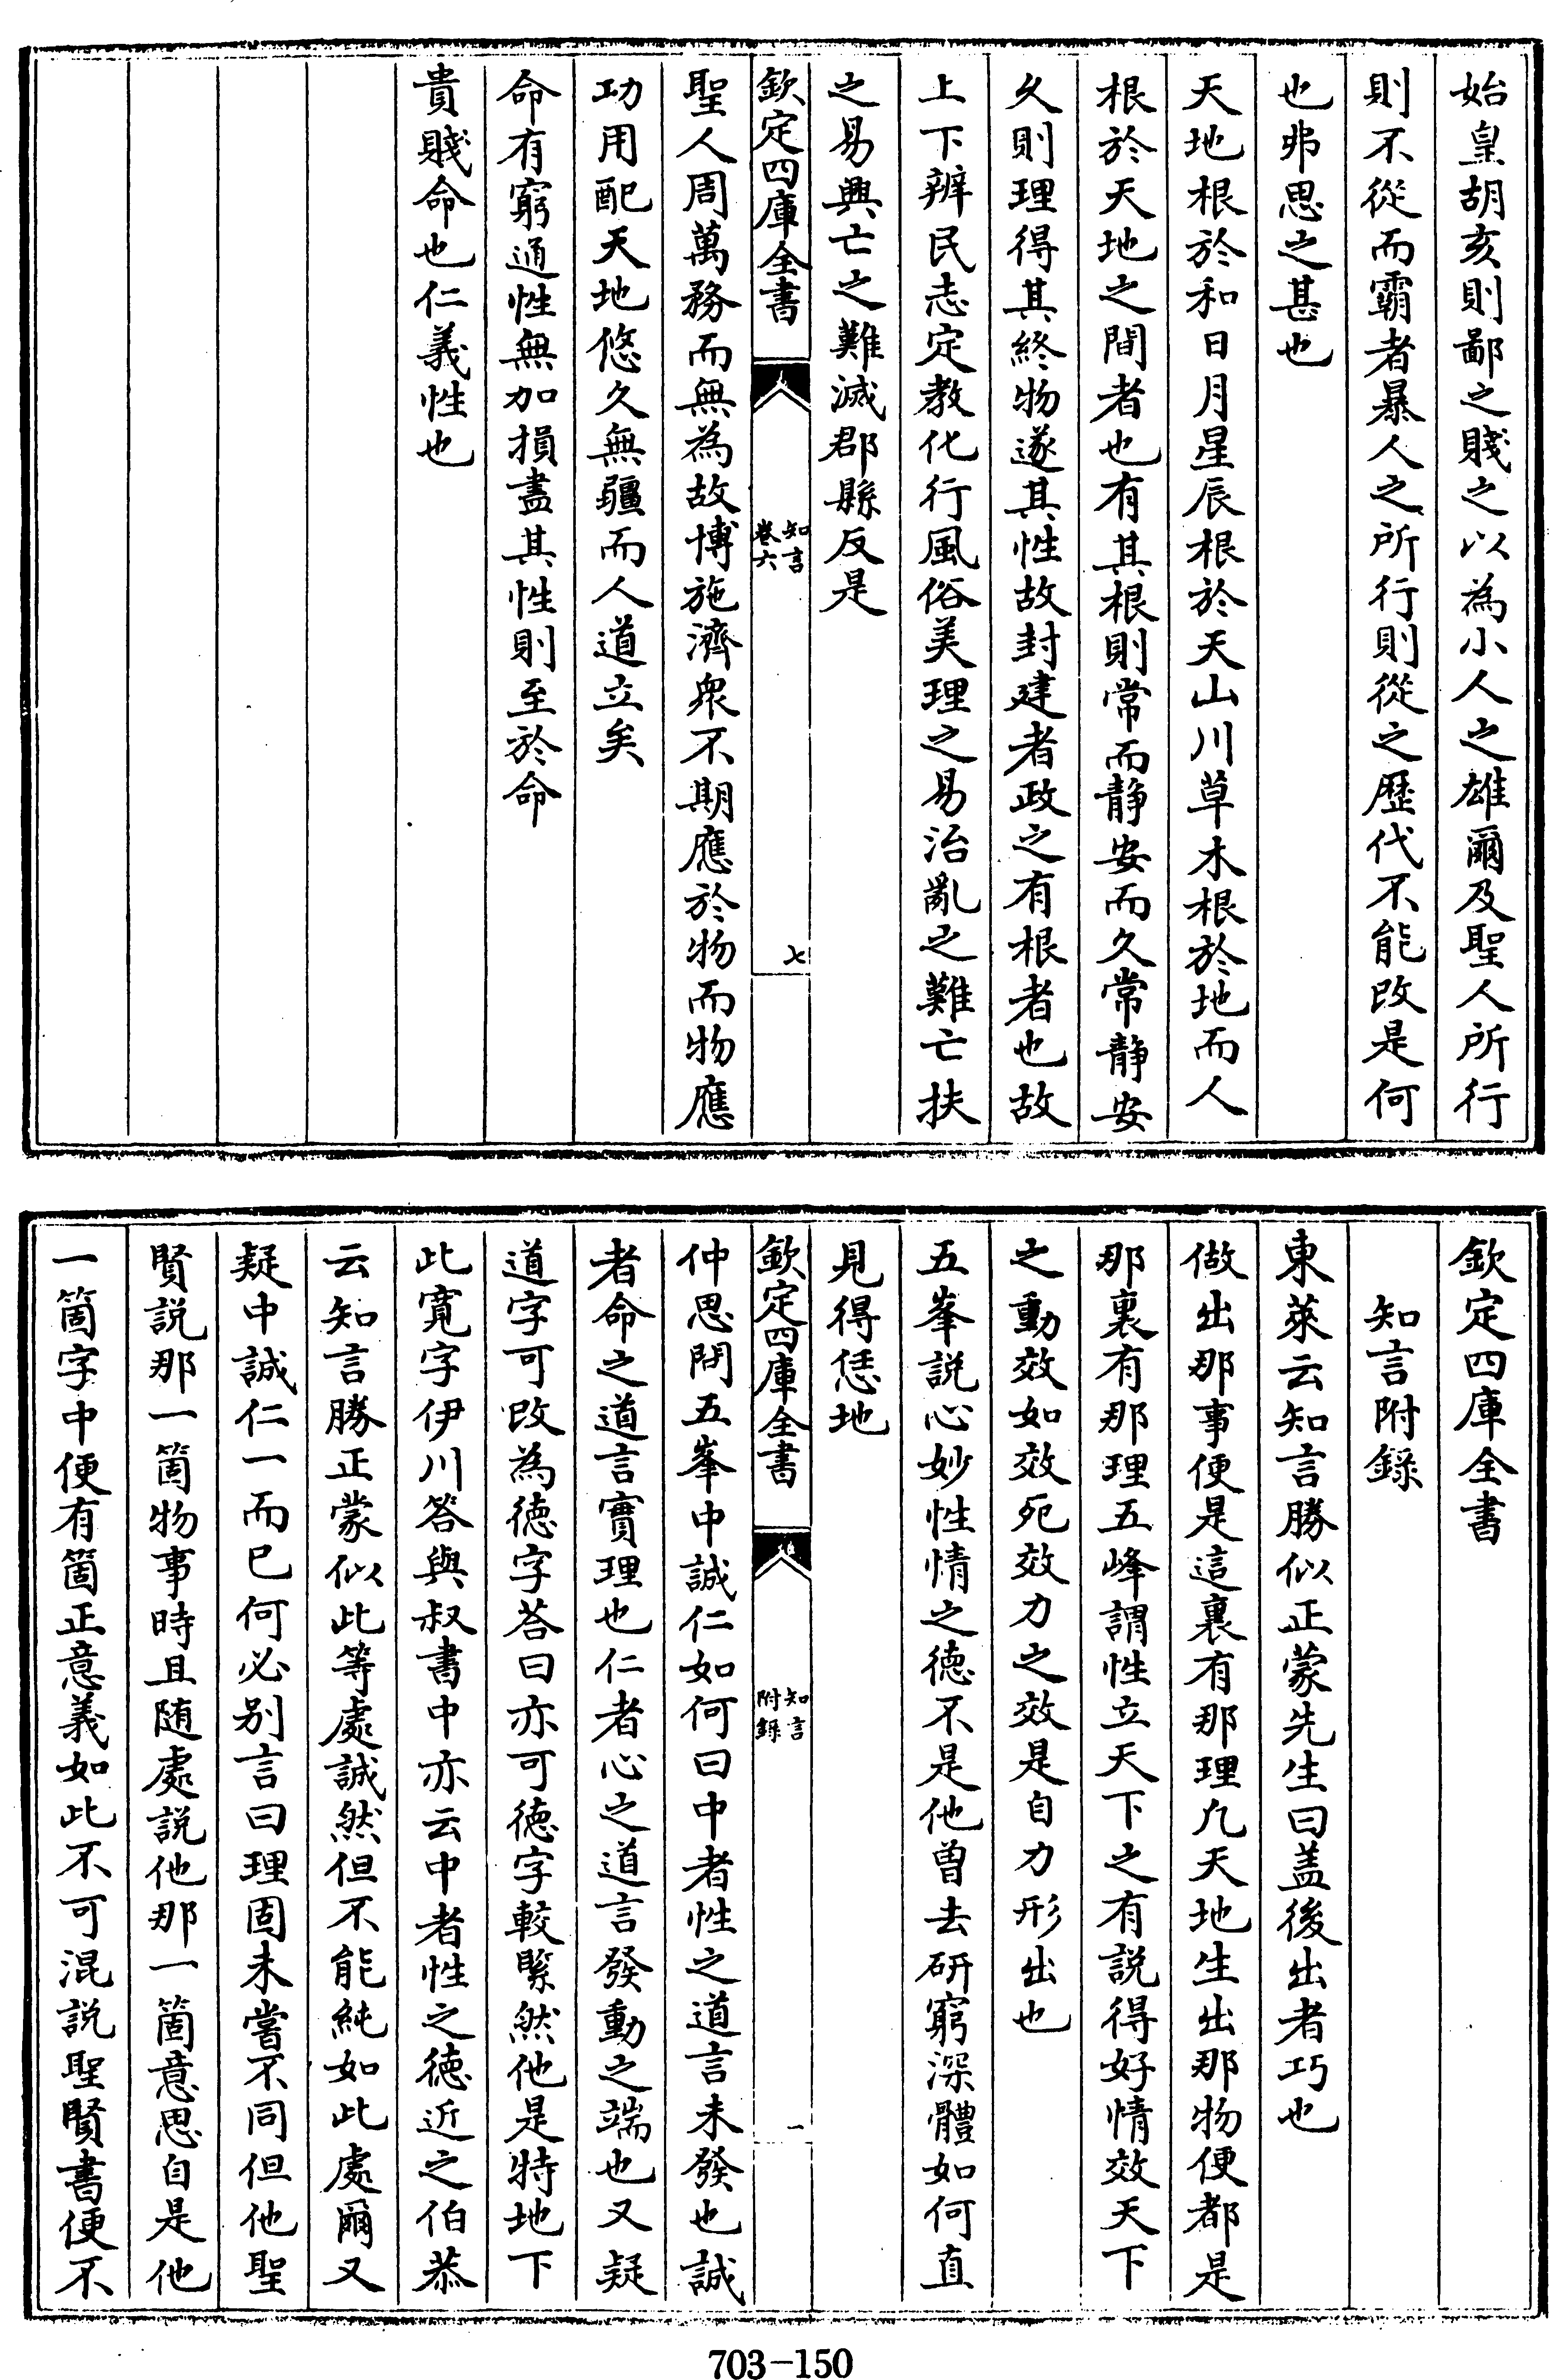 始皇胡亥則鄙之賤之以為小人之雄爾及聖人所行
則不從而霸者暴人之所行則從之歴代不能改是何
也弗思之甚也
天地根於和日月星辰根於天山川草木根於地而人
根於天地之間者也有其根則常而静安而久常静安
久則理得其終物遂其性故封建者政之有根者也故
上下辨民志定教化行風俗美理之易治亂之難亡扶
之易興亡之難滅郡縣反是
欽定四庫全書
知言
卷六
七
聖人周萬務而無為故博施濟衆不期應於物而物應
功用配天地悠久無疆而人道立矣
命有窮通性無加損盡其性則至於命
貴賤命也仁義性也
欽定四庫全書
知言附錄
東萊云知言勝似正蒙先生曰盖後出者巧也
做出那事便是這裏有那理凡天地生出那物便都是
那裏有那理五峰謂性立天下之有説得好情效天下
之動效如效死效力之效是自力形出也
五峯説心妙性情之徳不是他曾去研窮深體如何直
見得恁地
欽定四庫全書
知言
附錄
一
仲思問五峯中誠仁如何曰中者性之道言未發也誠
者命之道言實理也仁者心之道言發動之端也又疑
道字可改為徳字荅曰亦可徳字較緊然他是特地下
此寛字伊川答與叔書中亦云中者性之徳近之伯恭
云知言勝正蒙似此等處誠然但不能純如此處爾又
疑中誠仁一而已何必别言曰理固未嘗不同但他聖
賢説那一箇物事時且随處説他那一箇意思自是他
一箇字中便有箇正意義如此不可混説聖賢書便不
703-150